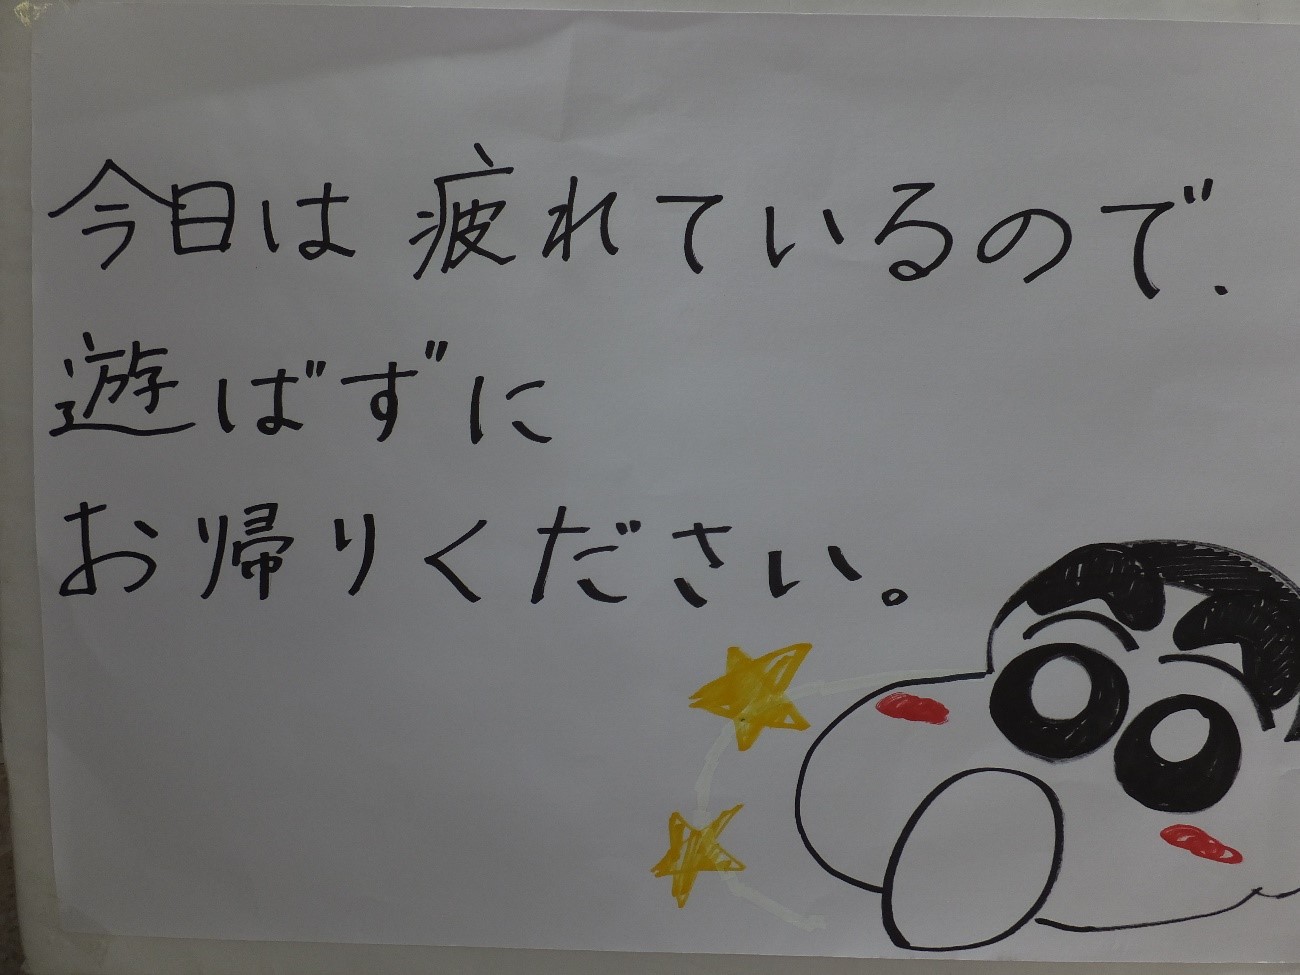 今日は疲れているので、
遊ばずに
お帰りください。